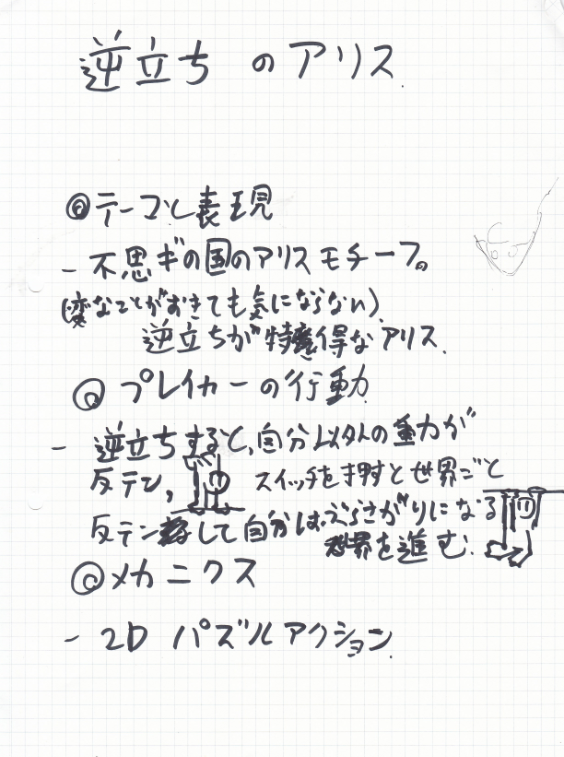 逆立ちのアリス
◎テーマと表現
- 不思ギの国のアリスモチーフ。
(変なことがおきても気にならない)
逆立ちが得意なアリス.
◎プレイヤーの行動
- 逆立ちすると、自分以外の重力が
反テン, スイッチを押すと世界ごと
反テンして自分はぶらさがりになる
世界を進む.
◎メカニクス
- 2D パズルアクション